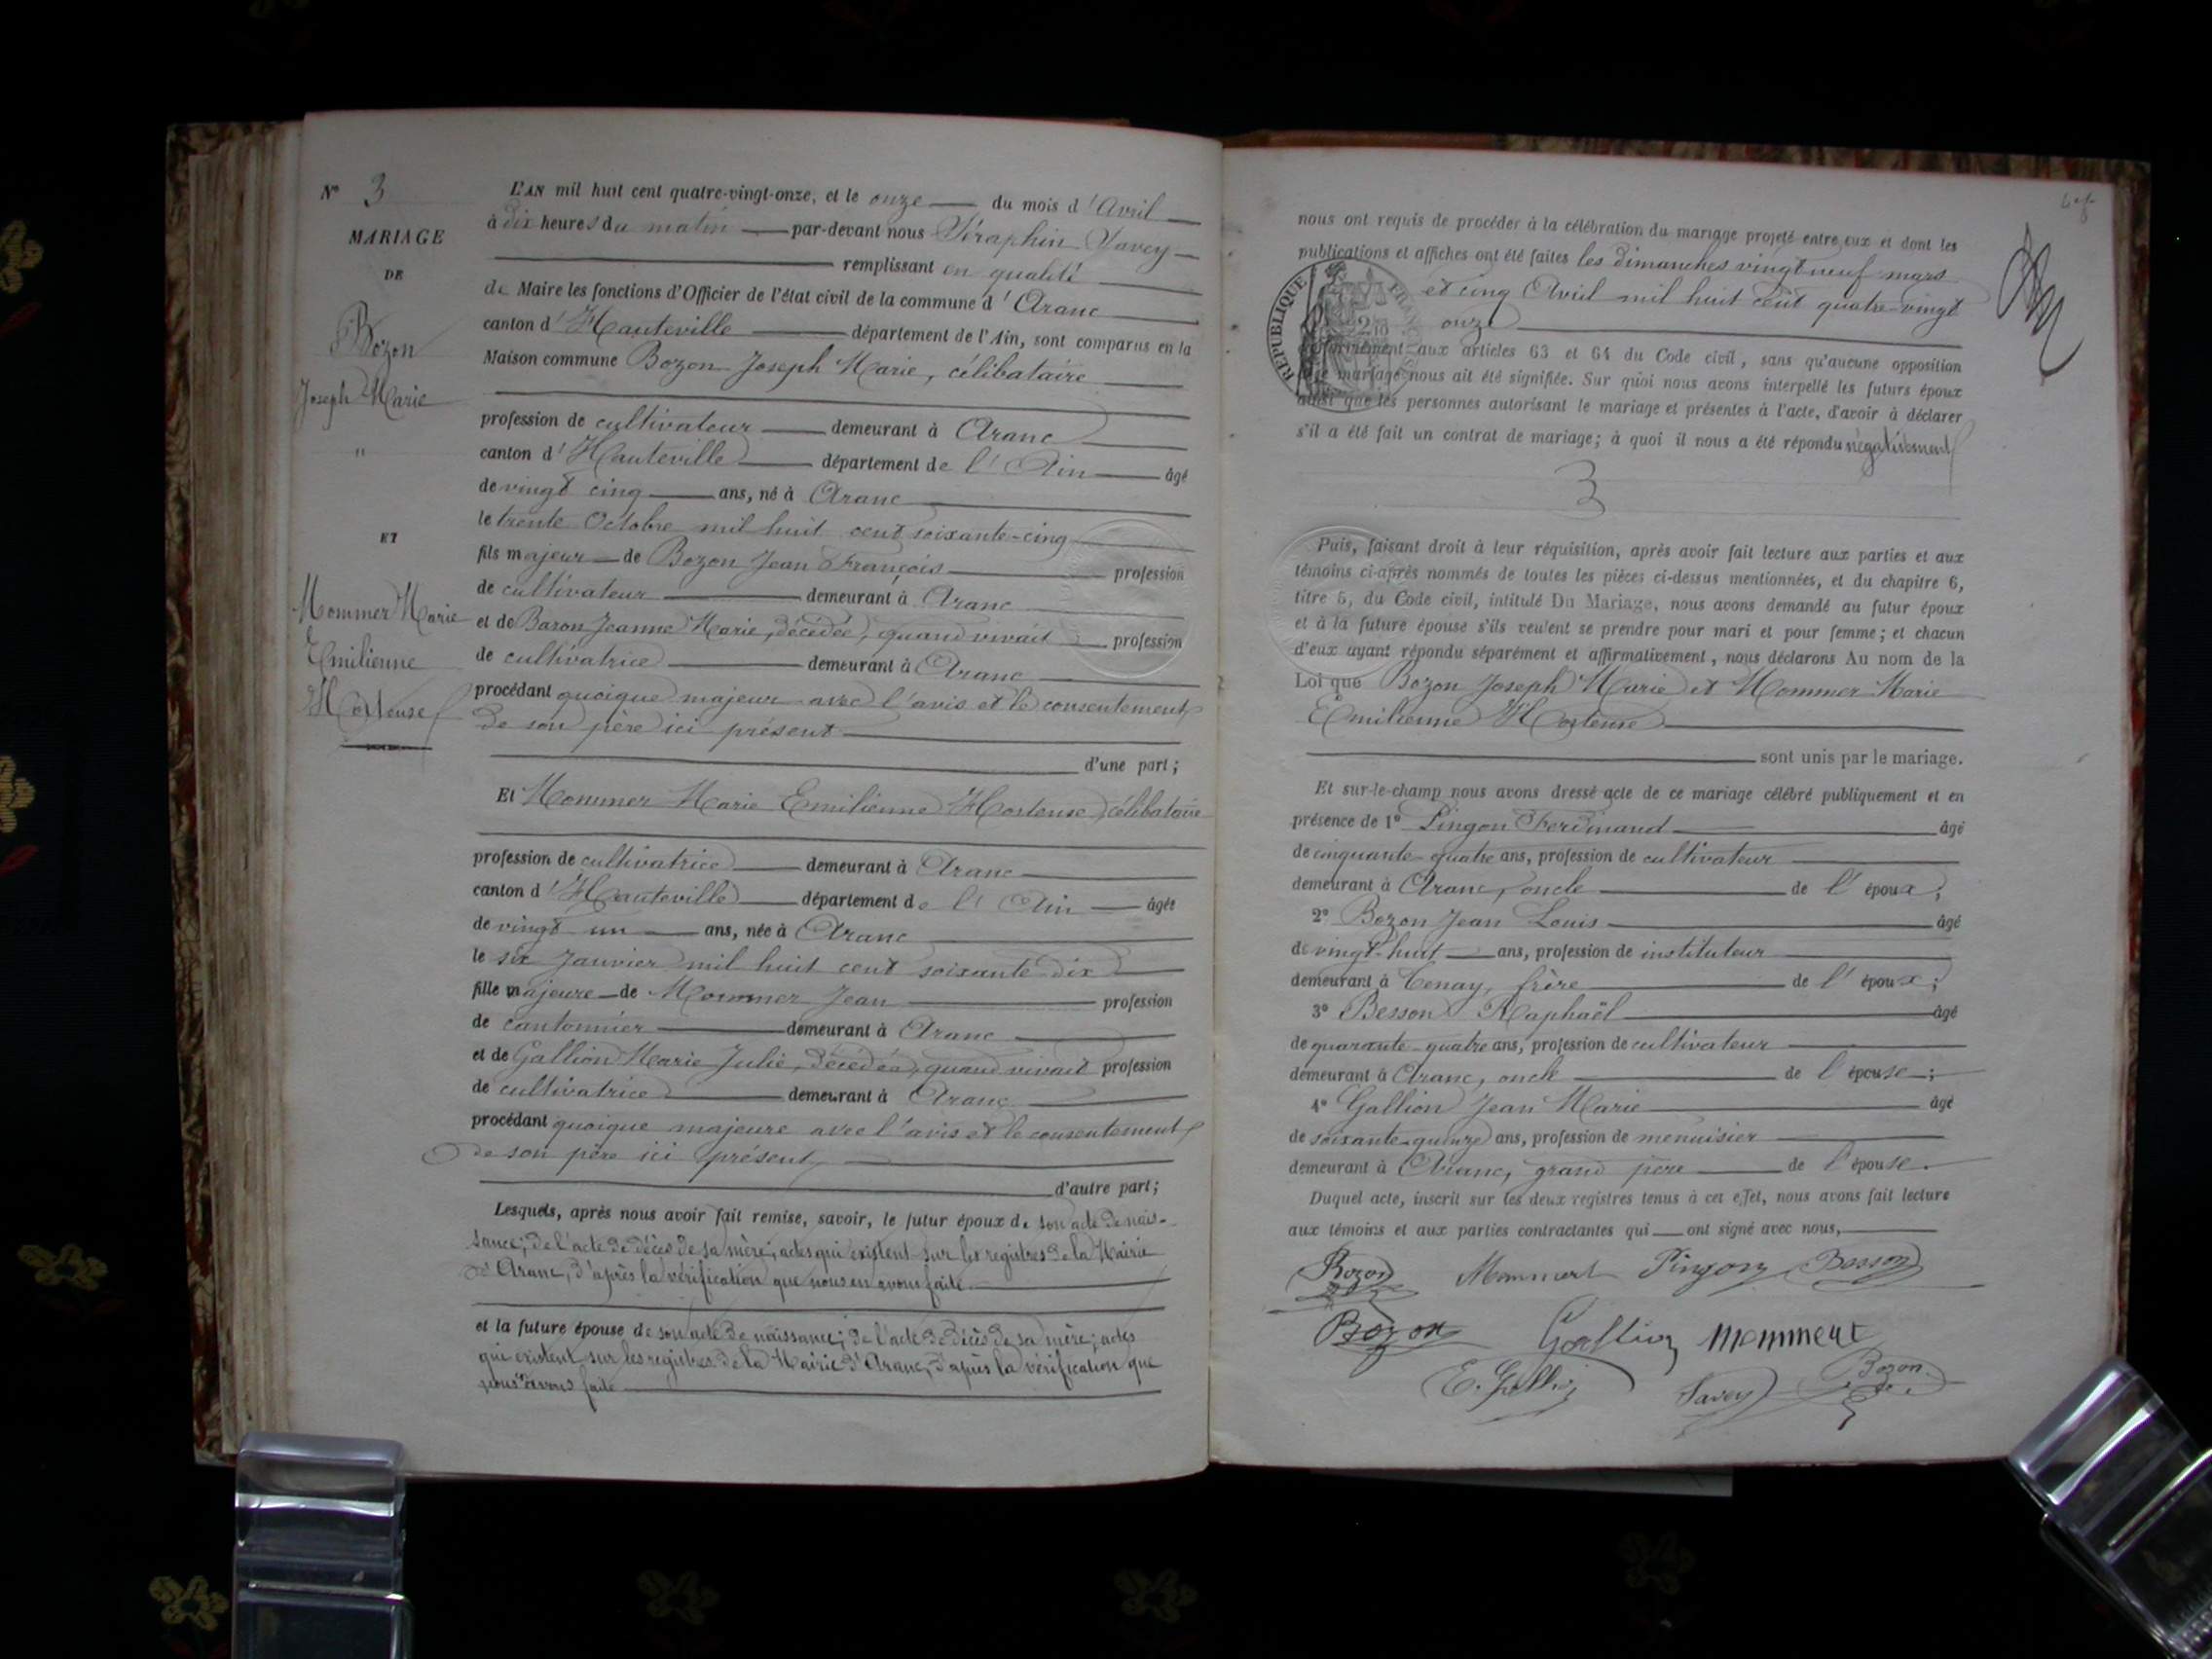 N° 3
MARIAGE
DE
Bozon
Joseph Marie
"
ET
Mommer Marie
Emilienne
Hortense
L'AN mil huit cent quatre-vingt-onze, et le onze du mois d'Avril
à dix heures du matin par-devant nous Séraphin Savey
remplissant en qualité
de Maire les fonctions d'Officier de l'état civil de la commune d'Aranc
canton d'Hauteville département de l'Ain, sont comparus en la
Maison commune Bozon Joseph Marie, célibataire
profession de cultivateur demeurant à Aranc
canton d'Hauteville département de l'Ain âgé
de vingt cinq ans, né à Aranc
le trente Octobre mil huit cent soixante-cinq
fils majeur de Bozon Jean François profession
de cultivateur demeurant à Aranc
et de Bozon Jeanne Marie, décédée, quand vivait profession
de cultivatrice demeurant à Aranc
procédant quoique majeur avec l'avis et le consentement
de son père ici présent
d'une part ;
Et Mommer Marie Emilienne Hortense, célibataire
profession de cultivatrice demeurant à Aranc
canton d'Hauteville département de l'Ain âgée
de vingt un ans, née à Aranc
le six Janvier mil huit cent soixante-dix
fille majeure de Mommer Jean profession
de cantonnier demeurant à Aranc
et de Gallion Marie Julie, décédée, quand vivait profession
de cultivatrice demeurant à Aranc
procédant quoique majeure avec l'avis et le consentement
de son père ici présent,
d'autre part ;
Lesquels, après nous avoir fait remise, savoir, le futur époux de son acte de nais-
sance ; de l'acte de décès de sa mère ; actes qui existent sur les registres de la Mairie
d'Aranc, d'après la vérification que nous en avons faite.
et la future épouse de son acte de naissance ; de l'acte de décès de sa mère ; actes
qui existent sur les registres de la Mairie d'Aranc, d'après la vérification que
nous en avons faite
nous ont requis de procéder à la célébration du mariage projeté entre eux et dont les
publications et affiches ont été faites les dimanches vingt neuf mars
et cinq Avril mil huit cent quatre-vingt
onze
RÉPUBLIQUE FRANÇAISE
conformément aux articles 63 et 64 du Code civil, sans qu'aucune opposition
à ce mariage nous ait été signifiée. Sur quoi nous avons interpellé les futurs époux
ainsi que les personnes autorisant le mariage et présentes à l'acte, d'avoir à déclarer
s'il a été fait un contrat de mariage ; à quoi il nous a été répondu négativement
Puis, faisant droit à leur réquisition, après avoir fait lecture aux parties et aux
témoins ci-après nommés de toutes les pièces ci-dessus mentionnées, et du chapitre 6,
titre 5, du Code civil, intitulé Du Mariage, nous avons demandé au futur époux
et à la future épouse s'ils veulent se prendre pour mari et pour femme ; et chacun
d'eux ayant répondu séparément et affirmativement, nous déclarons Au nom de la
Loi que Bozon Joseph Marie et Mommer Marie
Emilienne Hortense
sont unis par le mariage.
Et sur-le-champ nous avons dressé acte de ce mariage célébré publiquement et en
présence de 1° Pingon Ferdinand âgé
de cinquante-quatre ans, profession de cultivateur
demeurant à Aranc, oncle de l'époux ;
2° Bozon Jean Louis âgé
de vingt-huit ans, profession de instituteur
demeurant à Tenay, frère de l'époux ;
3° Besson Raphaël âgé
de quarante-quatre ans, profession de cultivateur
demeurant à Aranc, oncle de l'épouse ;
4° Gallion Jean Marie âgé
de soixante-quinze ans, profession de menuisier
demeurant à Aranc, grand père de l'épouse.
Duquel acte, inscrit sur les deux registres tenus à cet effet, nous avons fait lecture
aux témoins et aux parties contractantes qui ont signé avec nous,
Bozon Mommert Pingon Besson
Bozon Gallion Mommert
E. Gallion Savey Bozon